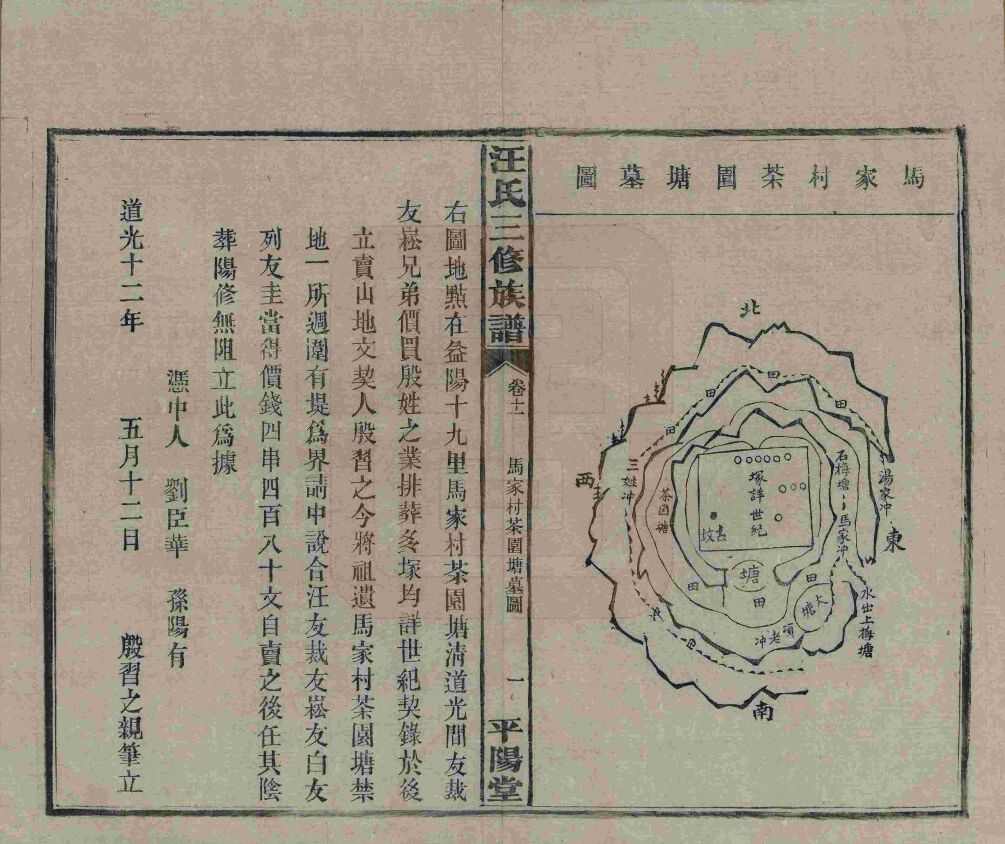 馬家村茶園塘墓圖
北
東
南
西
田
田
田
田
田
田
田
三姓冲
茶園塘
塚詳世紀
古坟
塘
大塘
石梅塘
馬家冲
湯家冲
水出上梅塘
項老冲
冲
汪氏三修族譜
卷十二
馬家村茶園塘墓圖
一
平陽堂
右圖地點在益陽十九里馬家村茶園塘清道光間友裁
友崧兄弟價買殷姓之業排葬多塚均詳世紀契錄於後
立賣山地文契人殷習之今將祖遺馬家村茶園塘禁
地一所週圍有堤爲界請中說合汪友裁友崧友白友
列友圭當得價錢四串四百八十文自賣之後任其陰
葬陽修無阻立此爲據
憑中人 劉臣華 孫陽有
道光十二年 五月十二日 殷習之親筆立